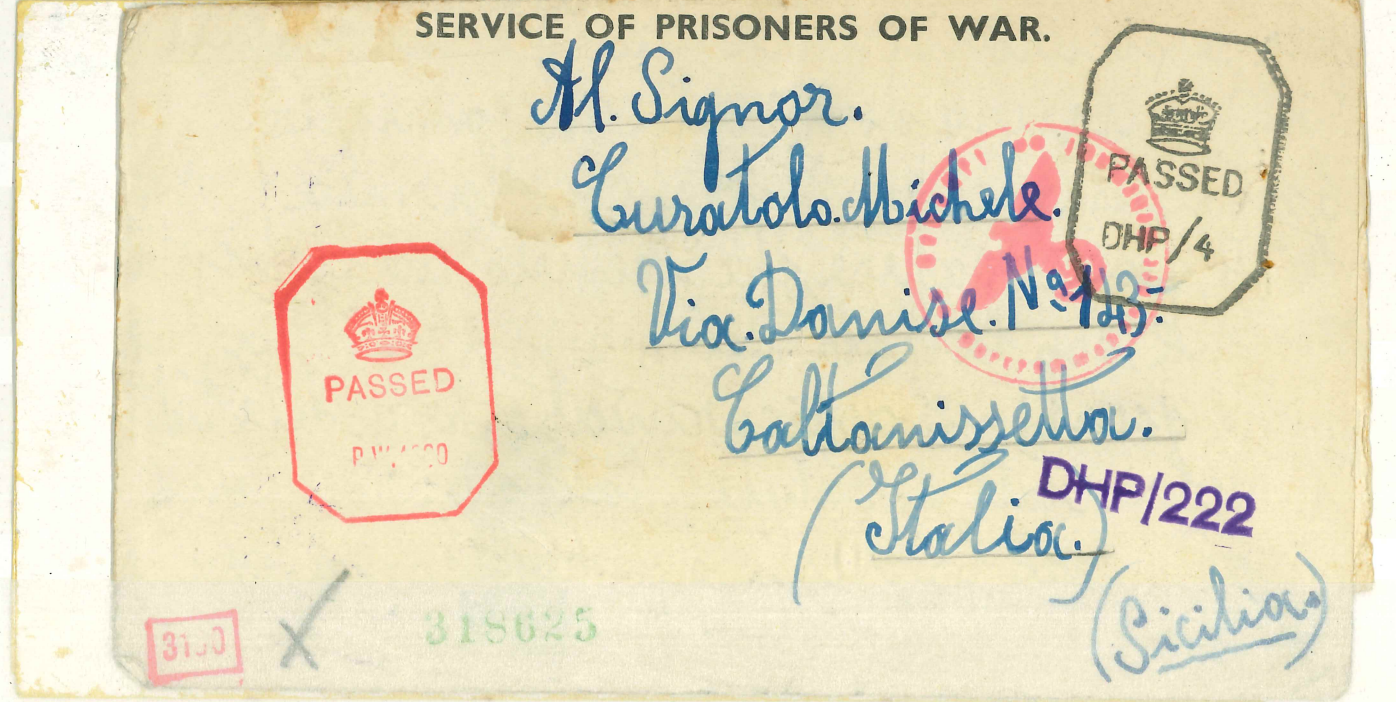 SERVICE OF PRISONERS OF WAR.
Al. Signor.
Curatolo. Michele.
Via. Danise. Nº 143=
Caltanissetta.
(Italia.)
(Sicilia.)
PASSED
DHP/4
PASSED
DHP/222
318625
X